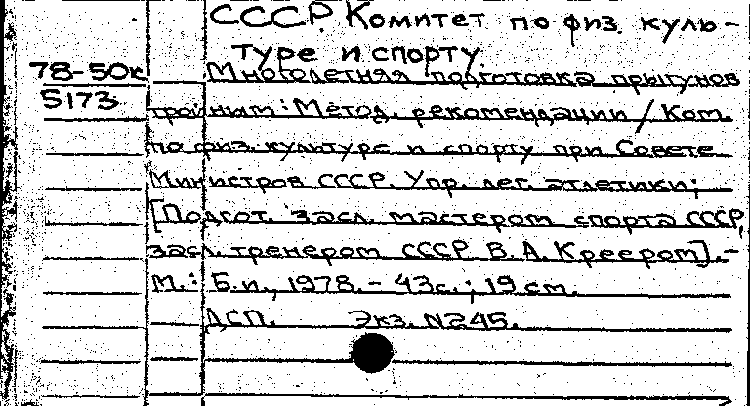 СССР. Комитет по физ. куль-
туре и спорту.
78-50к Многолетняя подготовка прыгунов
5173 тройным: Метод. рекомендации / Ком.
по физ. культуре и спорту при Совете
Министров СССР. Упр. лег. атлетики;
[Подгот. засл. мастером спорта СССР,
засл. тренером СССР В. А. Креером].-
М.: Б.и., 1978.- 43с.; 19 см.
ДСП. Экз. N245.